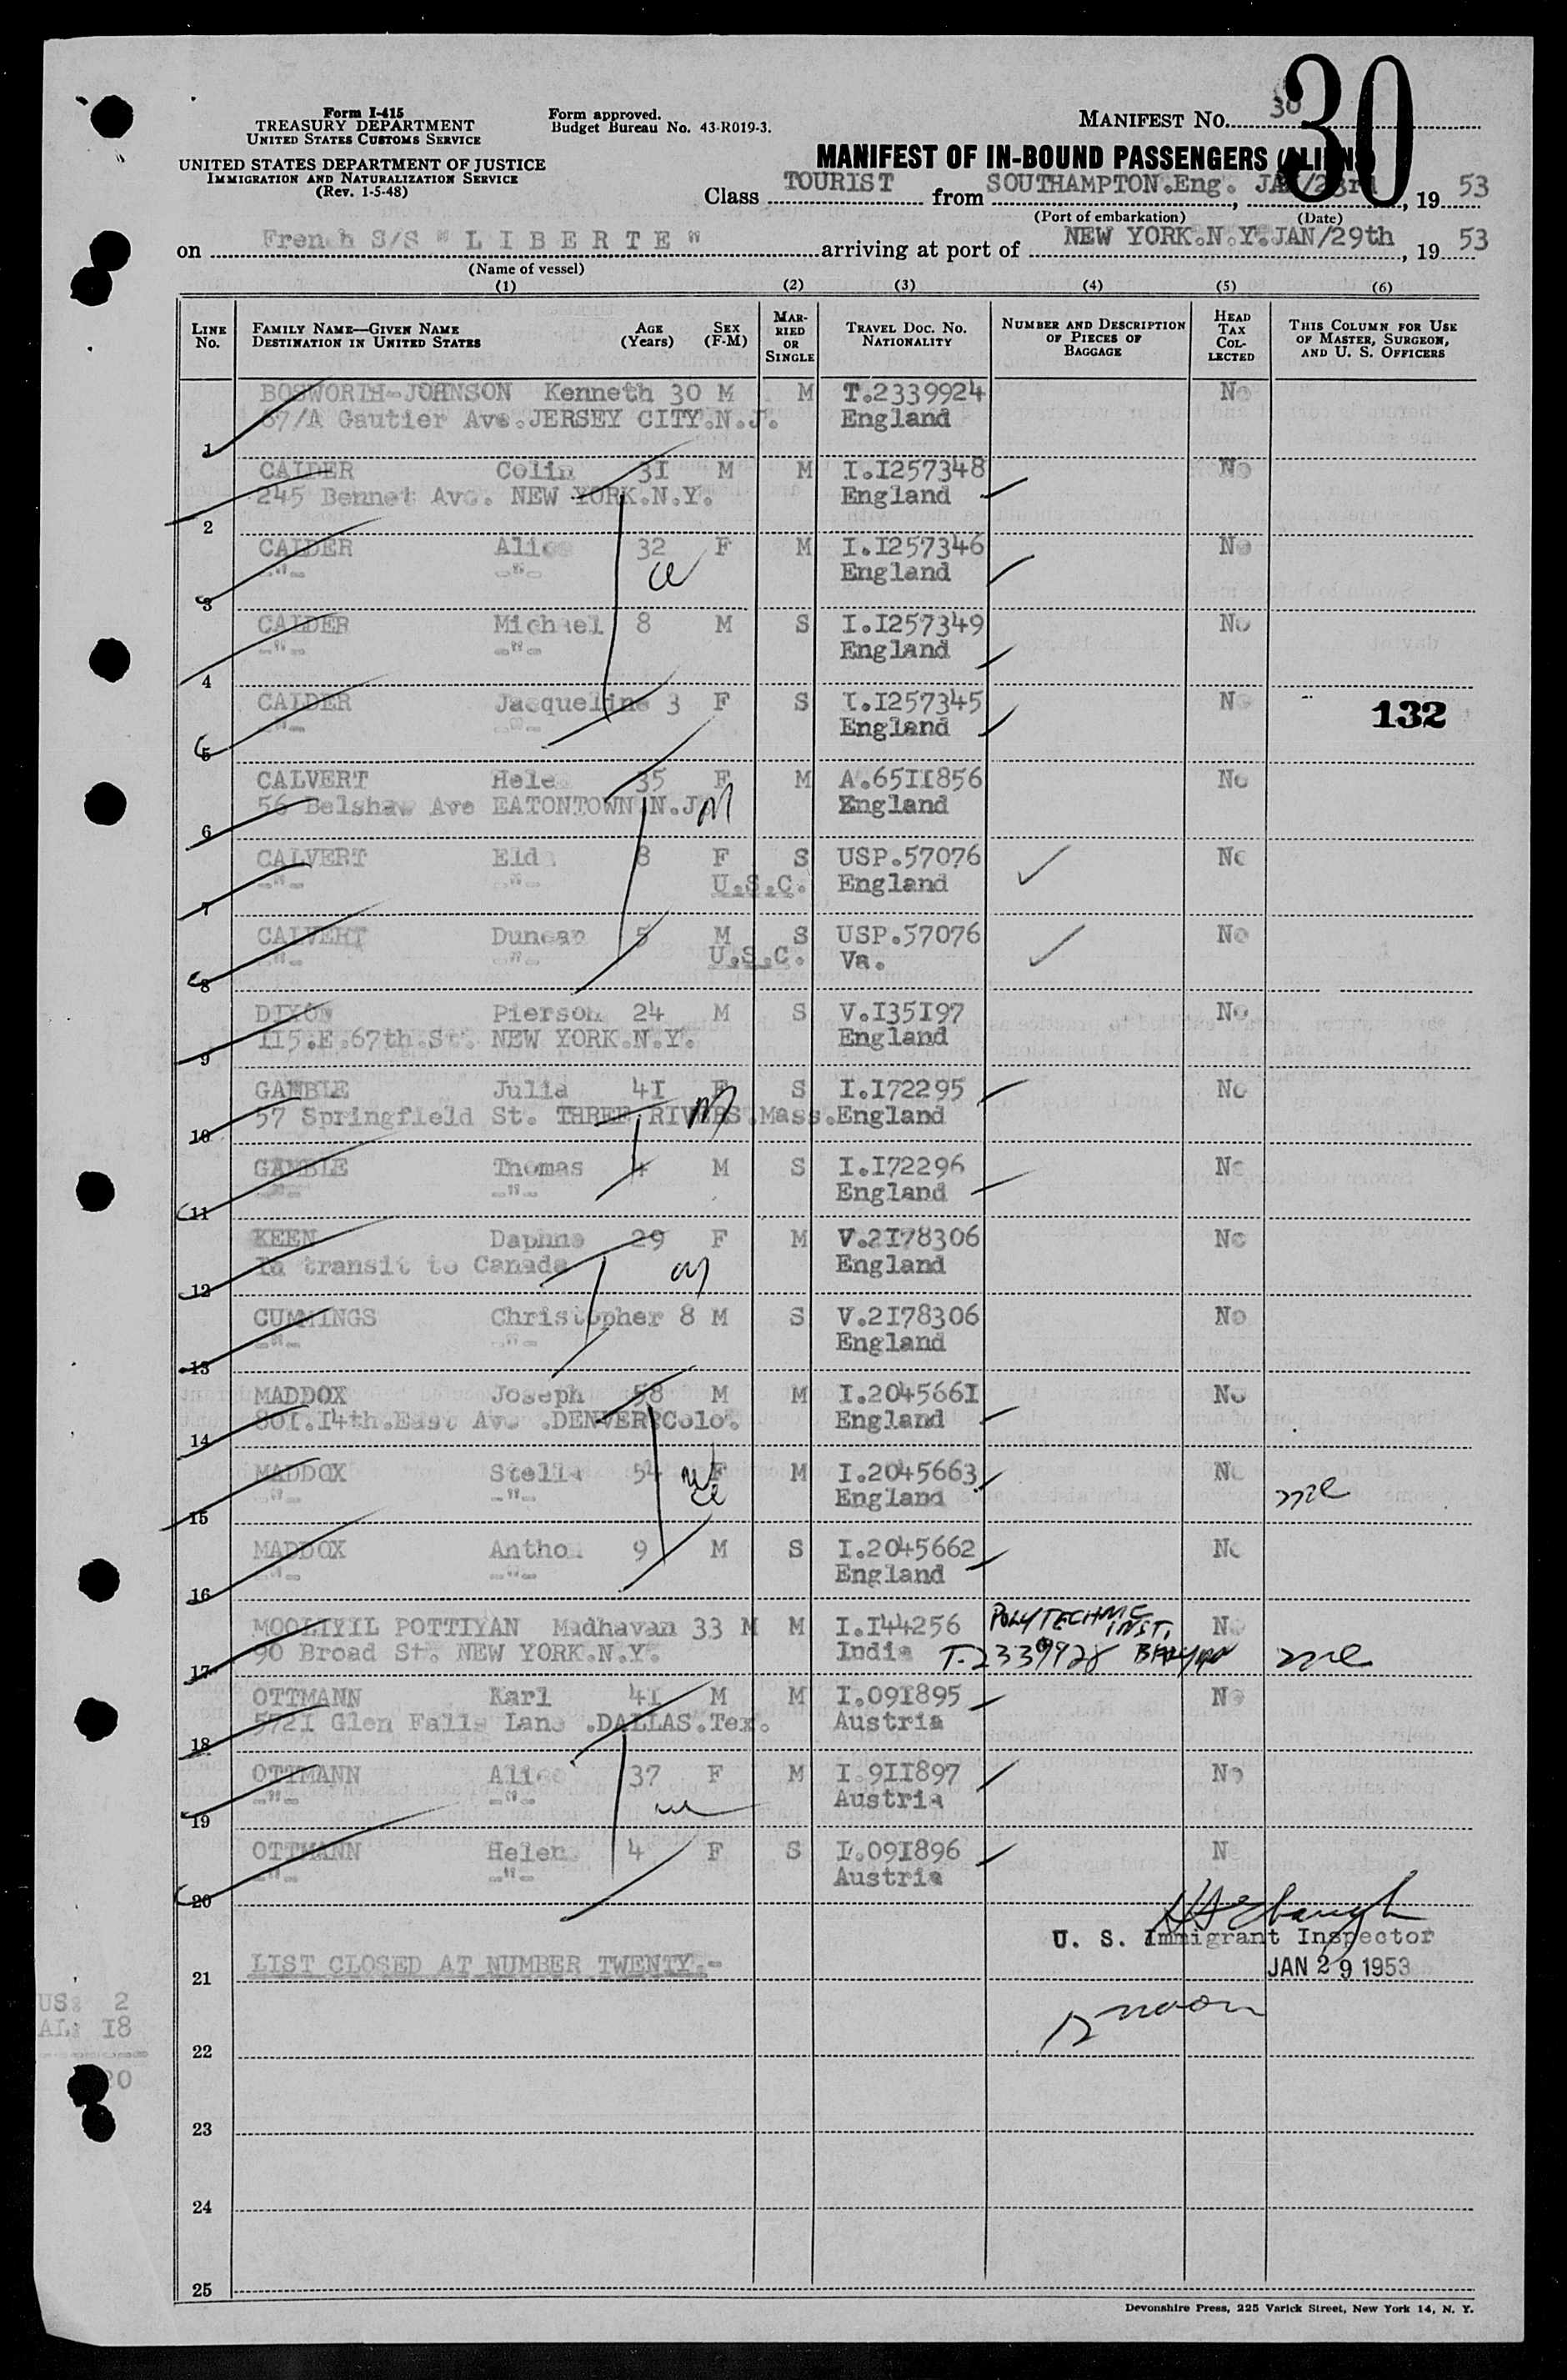 Form I-415
TREASURY DEPARTMENT
UNITED STATES CUSTOMS SERVICE
UNITED STATES DEPARTMENT OF JUSTICE
IMMIGRATION AND NATURALIZATION SERVICE
(Rev. 1-5-48)
Form approved.
Budget Bureau No. 43-R019-3.
MANIFEST NO. 30
30
MANIFEST OF IN-BOUND PASSENGERS (ALIENS)
Class TOURIST from SOUTHAMPTON.Eng. JAN/23rd, 19 53
(Port of embarkation) (Date)
on French S/S "LIBERTE" arriving at port of NEW YORK.N.Y.JAN/29th, 19 53
(Name of vessel)
(1) (2) (3) (4) (5) (6)
LINE NO. FAMILY NAME—GIVEN NAME DESTINATION IN UNITED STATES AGE (Years) SEX (F-M) MARRIED OR SINGLE TRAVEL DOC. NO. NATIONALITY NUMBER AND DESCRIPTION OF PIECES OF BAGGAGE HEAD TAX COLLECTED THIS COLUMN FOR USE OF MASTER, SURGEON, AND U. S. OFFICERS
BOSWORTH-JOHNSON Kenneth 30 M M T.2339924 No
1 67/A Gautier Ave.JERSEY CITY.N.J. England
CALDER Colin 31 M M I.I257348 No
2 245 Bennet Ave. NEW YORK.N.Y. England
CALDER Alice 32 F M I.I257346 No
3 -"- -"- England
CALDER Michael 8 M S I.I257349 No
4 -"- -"- England
CALDER Jacqueline 3 F S I.I257345 No
5 -"- -"- England 132
CALVERT Hele 35 F M A.65II856 No
6 56 Belshaw Ave EATONTOWN.N.J. England
CALVERT Eid 8 F S USP.57076 No
7 -"- -"- U.S.C. England
CALVERT Duncan 5 M S USP.57076 No
8 -"- -"- U.S.C. Va.
DIXON Pierson 24 M S V.I35I97 No
9 II5.E.67th.St. NEW YORK.N.Y. England
GAMBLE Julia 4I F S I.I72295 No
10 57 Springfield St. THREE RIVERS.Mass. England
GAMBLE Thomas 4 M S I.I72296 No
11 -"- -"- England
KEEN Daphne 29 F M V.2I78306 No
12 In transit to Canada England
CUMMINGS Christopher 8 M S V.2I78306 No
13 -"- -"- England
MADDOX Joseph 58 M M I.204566I No
14 80I.I4th.East Ave .DENVER.Colo. England
MADDOX Stella 54 F M I.2045663 No
15 -"- -"- England
MADDOX Antho 9 M S I.2045662 No
16 -"- -"- England
MOOLIYIL POTTIYAN Madhavan 33 M M I.I44256 POLYTECHNIC INST. No
17 90 Broad St. NEW YORK.N.Y. India T-2339928
OTTMANN Karl 4I M M I.09I895 No
18 572I Glen Falls Lane .DALLAS.Tex. Austria
OTTMANN Alice 37 F M I.9II897 No
19 -"- -"- Austria
OTTMANN Helen 4 F S I.09I896 N
20 -"- -"- Austria
U. S. Immigrant Inspector
21 LIST CLOSED AT NUMBER TWENTY.- JAN 29 1953
US: 2
AL: I8
20
22
23
24
25
Devonshire Press, 225 Varick Street, New York 14, N. Y.